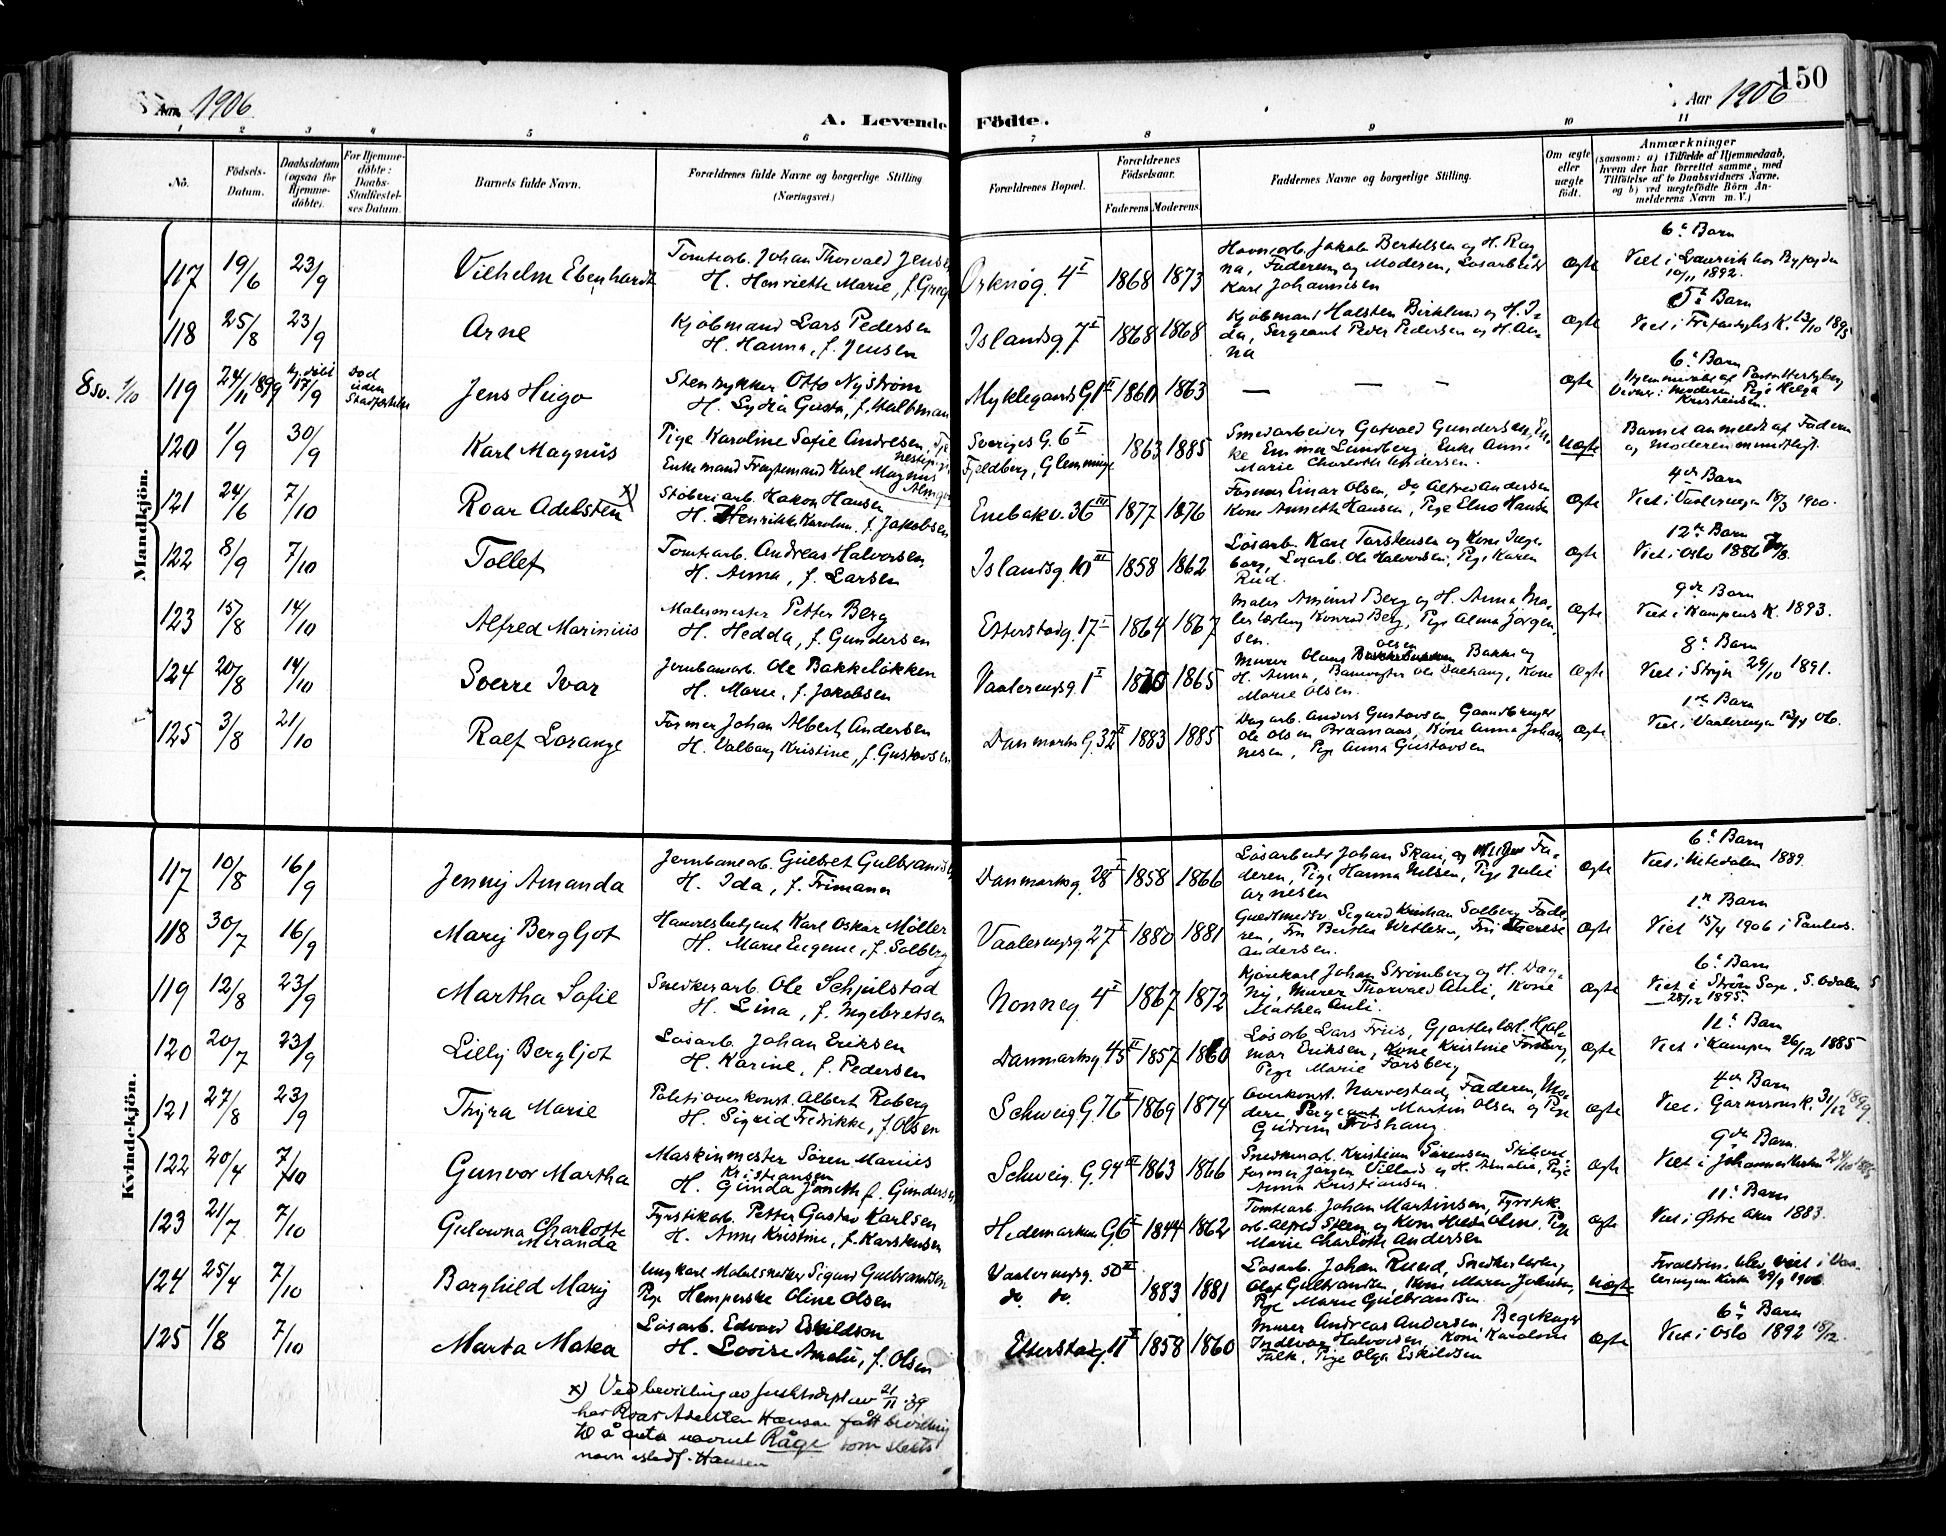 150
Aar 1906
A. Levende Födte.
Aar 1906
1 2 3 4 5 6 7 8 9 10 11
No.
Födsels-Datum.
Daabsdatum (ogsaa för Hjemmedöbte).
For Hjemmedöbte: Daabs-Stadfæstelses Datum.
Barnets fulde Navn.
Forældrenes fulde Navne og borgerlige Stilling (Næringsvei.)
Forældrenes Bopæl.
Forældrenes Födselsaar.
Faderens Moderens
Faddernes Navne og borgerlige Stilling.
Om ægte eller uægte födt.
Anmærkninger
(saasom: a) i Tilfælde af Hjemmedaab, hvem der har forrettet samme, med Tilföielse af to Daabsvidners Navne, og b) ved uægtefödte Börn Anmelderens Navn m. V.)
Mandkjön.
117 19/6 23/9 Vilhelm Ebenhardt
Tomtearb. Johan Thorvald Jensen
H. Henriette Marie, f. Greg
Orknög. 4 I 1868 1873
Havnearb. Jakob Bertelsen og H. Rag
na, Faderen og Moderen, Løsarbeider
Karl Johannesen
ægte
6te Barn
Viet i Laurvik hos Byfogden
10/11 1892.
118 25/8 23/9 Arne
Kjøbmand Lars Pedersen
H. Hanna, f. Jensen
Islandsg. 7 I 1868 1868
Kjøbmand Halsten Birklund og H. I-
da, Sergeant Peder Pedersen og H. An-
na
ægte
5te Barn
Viet i Trefoldighs K. 13/10 1895
8 sv. 1/10
119 24/11 1899 hj. døbt 17/9 Død uden Stadfæstelse
Jens Hugo
Stentrykker Otto Nystrøm
H. Lydia Gusta, f. Hallman
Myklegaards G. 1 II 1861 1863
— — —
ægte
6te Barn
Hjemmedøbt af Pastor Hertzberg
Vidner: Moderen, Pige Helga
Kristensen.
120 1/9 30/9 Karl Magnus
Pige Karoline Sofie Andresen, Tje
nestepige
Enkemand Fragtemand Karl Magnus
Almgren
Sveriges G. 6 I
Fjeldberg, Glemminge
1863 1885
Smedarbeider Gotvald Gundersen, En-
ke Emma Lundberg, Enke Anne
Marie Charlotte Andersen.
uægte
Barnet anmeldt af Faderen
og Moderen mundtligt.
121 24/6 7/10 Roar Adelsten x)
Støberiarb. Hakon Hansen
H. Henrikke Karoline, f. Jakobsen
Enebakv. 36 III 1877 1876
Former Einar Olsen, do Alfred Andersen
Kone Annette Hansen, Pige Elna Hansen
ægte
4de Barn
Viet i Vaalerengen 18/3 1900.
122 8/9 7/10 Tollef
Tomtearb. Andreas Halvorsen
H. Anna, f. Larsen
Islandsg. 10 III 1858 1862
Løsarb. Karl Torstensen og Kone Inge-
borg, Løsarb. Ole Halvorsen, Pige Karen
Rud.
ægte
12te Barn
Viet i Oslo 1886
123 15/8 14/10 Alfred Marinius
Malermester Petter Berg
H. Hedda, f. Gundersen
Etterstadg. 17 I 1864 1867
Maler Amund Berg og H. Anna, Ma-
lerlærling Konrad Berg, Pige Alma Jørgen-
sen.
ægte
9de Barn
Viet i Kampens K. 1893.
124 20/8 14/10 Sverre Ivar
Jernbanearb. Ole Bakkeløkken
H. Marie, f. Jakobsen
Vaalerengsg. 1 I 1865
Olsen
Murer Olaus Bakke og
H. Anna, Banevogter Ole Dælhaug, Kone
Marie Olsen.
ægte
8de Barn
Viet i Stryn 29/10 1891.
125 3/8 21/10 Rolf Lorange
Former Johan Albert Andersen
H. Valborg Kristine, f. Gustavsen
Danmarks G. 32 II 1883 1885
Dagarb. Anders Gustavsen, Gaardbruger
Ole Olsen Braanaas, Kone Anna Johan-
nesen, Pige Anna Gustavsen
ægte
1ste Barn
Viet i Vaalerengen 06.
Kvindekjön.
117 10/8 16/9 Jenny Amanda
Jernbanearb. Gulbret Gulbrandsen
H. Ida, f. Frimann
Danmarksg. 28 I 1858 1866
Løsarbeider Johan Skari, og Fa-
deren, Pige Hanna Nilsen, Pige Julie
Arnesen
ægte
6te Barn
Viet i Nitedalen 1889.
118 30/7 16/9 Mary Bergljot
Handelsbetjent Karl Oskar Møller
H. Marie Eugenie, f. Solberg
Vaalerengsg 27 I 1880 1881
Guldsmedsv. Sigurd Kristian Solberg, Fade-
ren, Fru Bertha Wetlesen, Fru Therese
Andersen.
ægte
1ste Barn
Viet 15/4 1906 i Paulus.
119 12/8 23/9 Martha Sofie
Snedkerarb. Ole Schjulstad
H. Lina, f. Ingebretsen
Nonneg. 4 I 1867 1872
Kjørekarl Johan Strømberg og H. Dag-
ny, Murer Thorvald Auli, Kone
Mathea Auli.
ægte
6te Barn
Viet i Strøm Sogn, S. Odalen
28/12 1895.
120 20/7 23/9 Lilly Bergljot
Løsarb. Johan Eriksen
H. Karine, f. Pedersen
Danmarksg. 45 II 1857 1860
Løsarb Lars Friis, Gjørtlerlærl. Hjal-
mar Eriksen, Kone Kristine Forsberg,
Pige Marie Forsberg
ægte
12te Barn
Viet i Kampen 26/12 1885
121 27/8 23/9 Thyra Marie
Politioverkonst. Albert Roberg
H. Sigrid Fredrikke, f. Olsen
Schweig. G. 76 II 1869 1874
Overkonst. Narvestad, Faderen, Mo-
deren Sergeant Martin Olsen og Pige
Gudrun Foshaug.
ægte
4de Barn
Viet i Garnisons K. 31/12 1899.
122 20/4 7/10 Gunvor Martha
Maskinmester Søren Marius
Kristiansen
H. Gunda Janette f. Gundersen
Schweig. G. 94 III 1863 1866
Snedkerarb. Kristian Sørensen,
former Jørgen Villad og H. Amalie, Pige
Anna Kristiansen.
ægte
9de Barn.
Viet i Johanneskirken
123 21/7 7/10 Gulowna Charlotte
Miranda
Fyrstikarb. Petter Gustav Karlsen
H. Anne Kristine, f. Karstensen
Hedemarkens G. 6 I 1844 1862
Tomtearb. Johan Martinsen, Fyrstik-
arb. Alfred Steen og Kone Hilda Oline, Pige
Marie Charlotte Andersen
ægte
11te Barn
Viet i Østre Aker 1883.
124 25/4 7/10 Borghild Mary
Ungkarl Møbelsnedker Sigurd Gulbrandsen
Pige Hemperske Oline Olsen
Vaalerengsg. 50 II
do. do.
1883 1881
Løsarb. Johan Ruud, Snedkerlærling
Olaf Gulbrandsen, Kone Maren Johnsen,
Pige Marie Gulbrandsen
uægte
Forældrene blev viet i Vaa-
lerengen Kirke 29/9 1906
125 1/8 7/10 Marta Matea
Løsarb. Edvard Eskildson
H. Lovise Amalie, f. Olsen
Etterstadg. 11 I 1858 1860
Murer Andreas Andersen,
Halvorsen, Kone Karoline
Falk, Pige Olga Eskildsen
ægte
6te Barn
Viet i Oslo 1892 18/12.
x) Ved bevilling av Justisdept av 21/11 -39
har Roar Adelsten Hansen fått bevilling
til å anta navnet Råge som slekts
navn istedf. Hansen